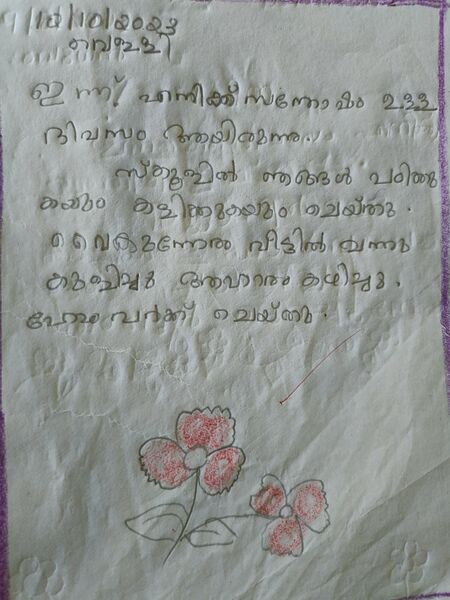 13/10/2023
വെള്ളി
ഇന്ന് എനിക്ക് സന്തോഷം ഉള്ള
ദിവസം ആയിരുന്നു.
സ്കൂളിൽ ഞങ്ങൾ പഠിത്തു
കയും കളിത്തുകയും ചെയ്തു.
വൈകുന്നേരം വീട്ടിൽ വന്നു
കുളിച്ചു ആഹാരം കഴിച്ചു.
ഹോംവർക്ക് ചെയ്തു.